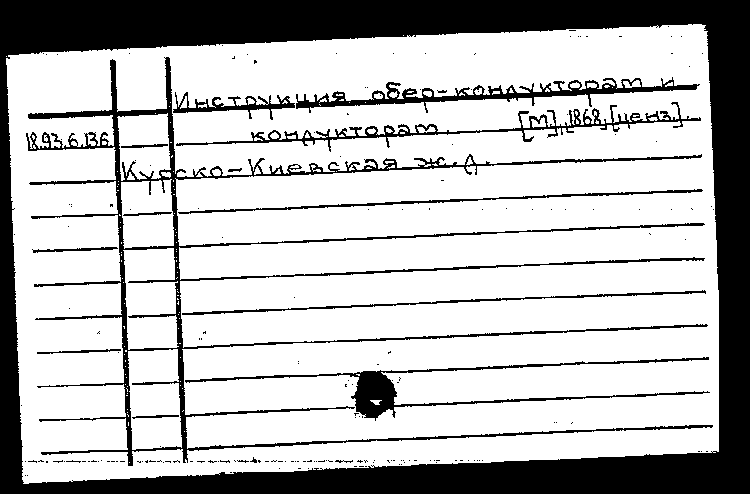 Инструкция обер-кондукторам и
18.93.6.136 кондукторам. [М], 1868, [ценз.].
Курско-Киевская ж.д.